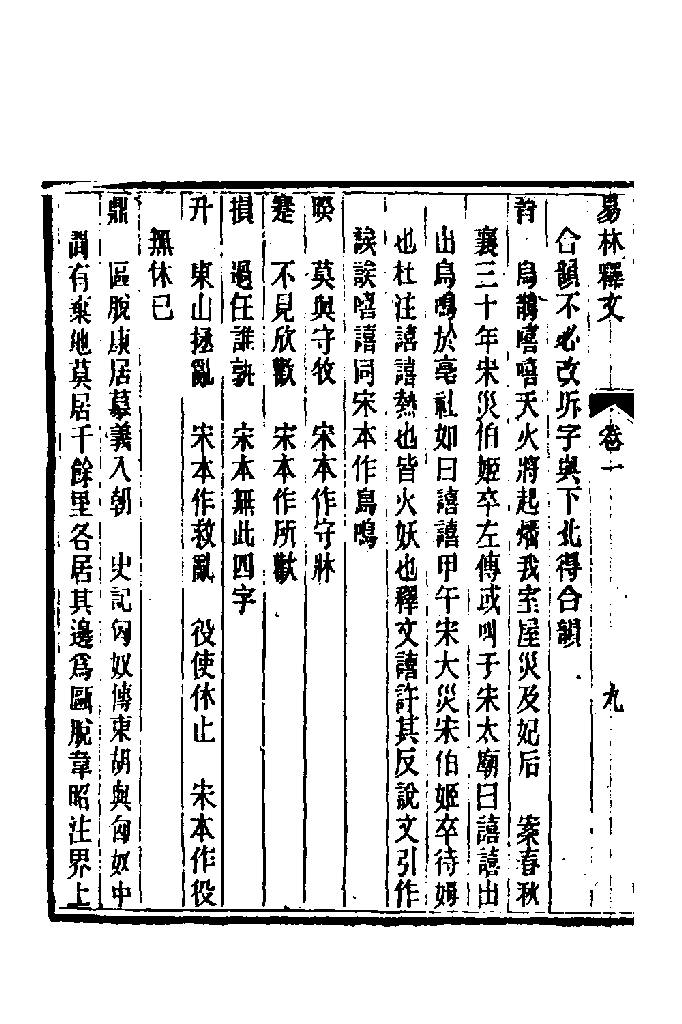 易林釋文　卷一　九
合韻不必改坼字與下北得合韻
訟　鳥鵲嘻嘻天火將起燔我室屋災及妃后　案春秋
襄三十年宋災伯姬卒左傳或叫于宋太廟曰譆譆出
出鳥鳴於亳社如曰譆譆甲午宋大災宋伯姬卒待姆
也杜注譆譆熱也皆火妖也釋文譆許其反說文引作
誒誒嘻譆同宋本作鳥鳴
睽　莫與守牧　宋本作守牀
蹇　不見欣歡　宋本作所歡
損　過任誰孰　宋本無此四字
升　東山拯亂　宋本作救亂　役使休止　宋本作役
無休已
鼎　區脫康居慕義入朝　史記匈奴傳東胡與匈奴中
間有棄地莫居千餘里各居其邊爲甌脫韋昭注界上